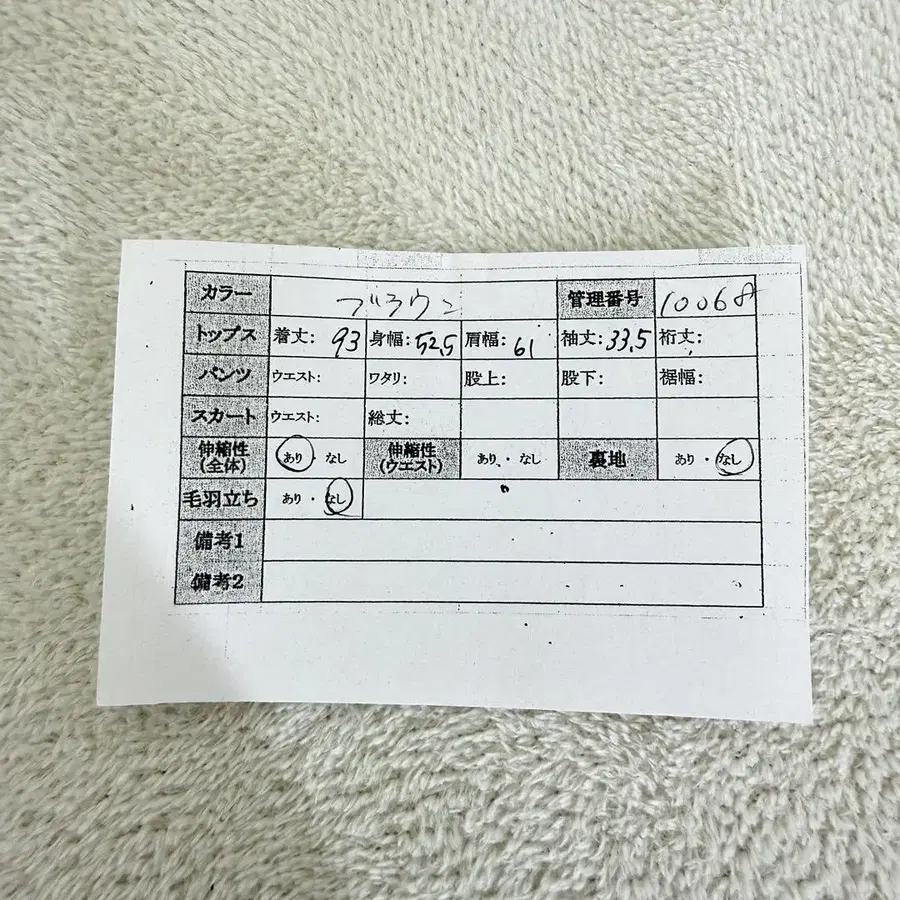 カラー ブラウン 管理番号 10068
トップス 着丈: 93 身幅: 52.5 肩幅: 61 袖丈: 33.5 裄丈:
パンツ ウエスト: ワタリ: 股上: 股下: 裾幅:
スカート ウエスト: 総丈:
伸縮性(全体) あり・なし 伸縮性(ウエスト) あり・なし 裏地 あり・なし
毛羽立ち あり・なし
備考1
備考2